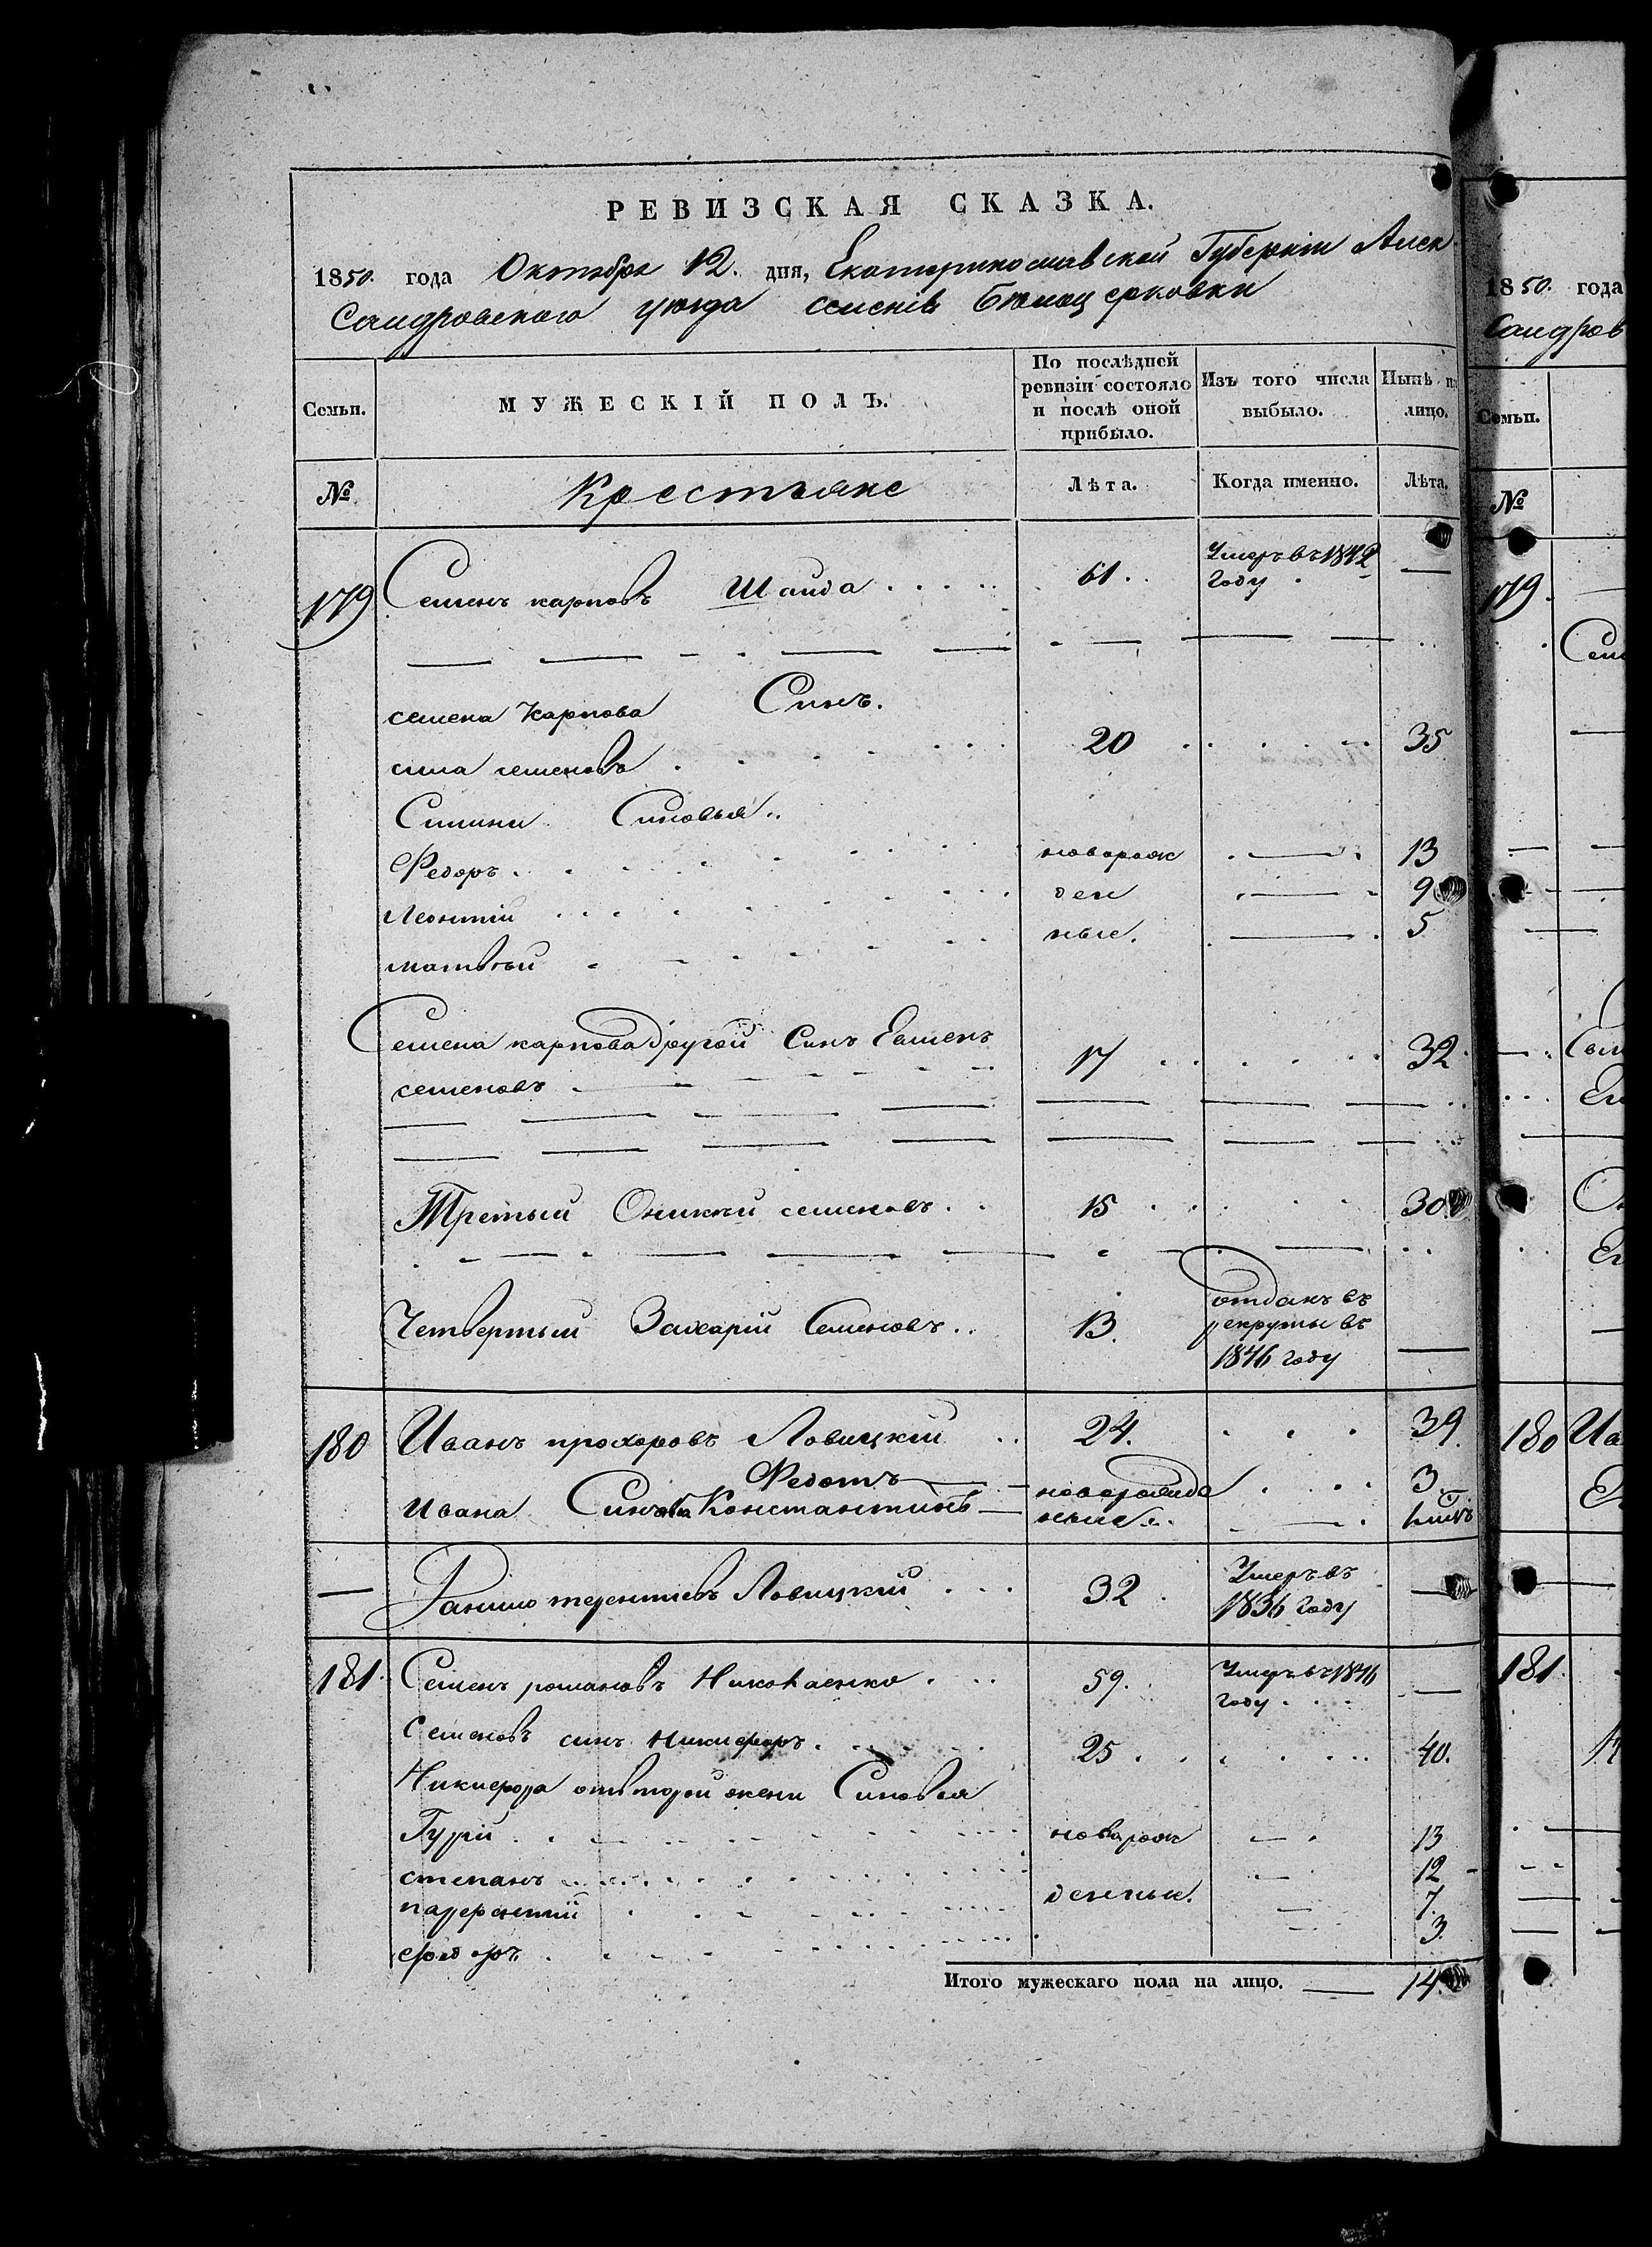 РЕВИЗСКАЯ СКАЗКА.
1850. года Октября 12. дня, Екатеринославской Губерніи Алек
Сандровского уезда селенія Белоцерковки
Семьи. МУЖЕСКІЙ ПОЛЪ. По послѣдней ревизіи состояло и послѣ оной прибыло. Изъ того числа выбыло. Нынѣ на лицо.
№ Крестьяне Лѣта. Когда именно. Лѣта.
179 Семенъ карповъ Шаида 61. Умеръ въ 1842 году —
семена Карпова Синъ.
сила семеновъ 20 35
Силини Синовья
Федоръ новорож 13
Леонтій ден 9
матвѣй ные. 5
Семена карпова другой Синъ Евменъ
семеновъ 17 32
Третый Оникій семеновъ 15 30
Четвертый Захарій Семеновъ 13. отданъ въ рекруты въ 1846 году —
180 Иванъ прохоровъ Ловицкій 24. 39.
Федотъ 3
Ивана Синовья Константинъ новорожде ные
— Данило терентиевъ Ловицкій 32 Умеръ въ 1836 году —
181. Семенъ романовъ Николаенко 59. Умеръ въ 1846 году —
Семеновъ синъ Никифоръ 25 40.
Никифора отвторой жени Синовья
Гурій новорож 13
степанъ 12
парфентій денные. 7.
федоръ 3.
Итого мужескаго пола на лицо. — 14
1850. года
Сандров
Семьи.
№
179.
Сем
180 Ив
181.